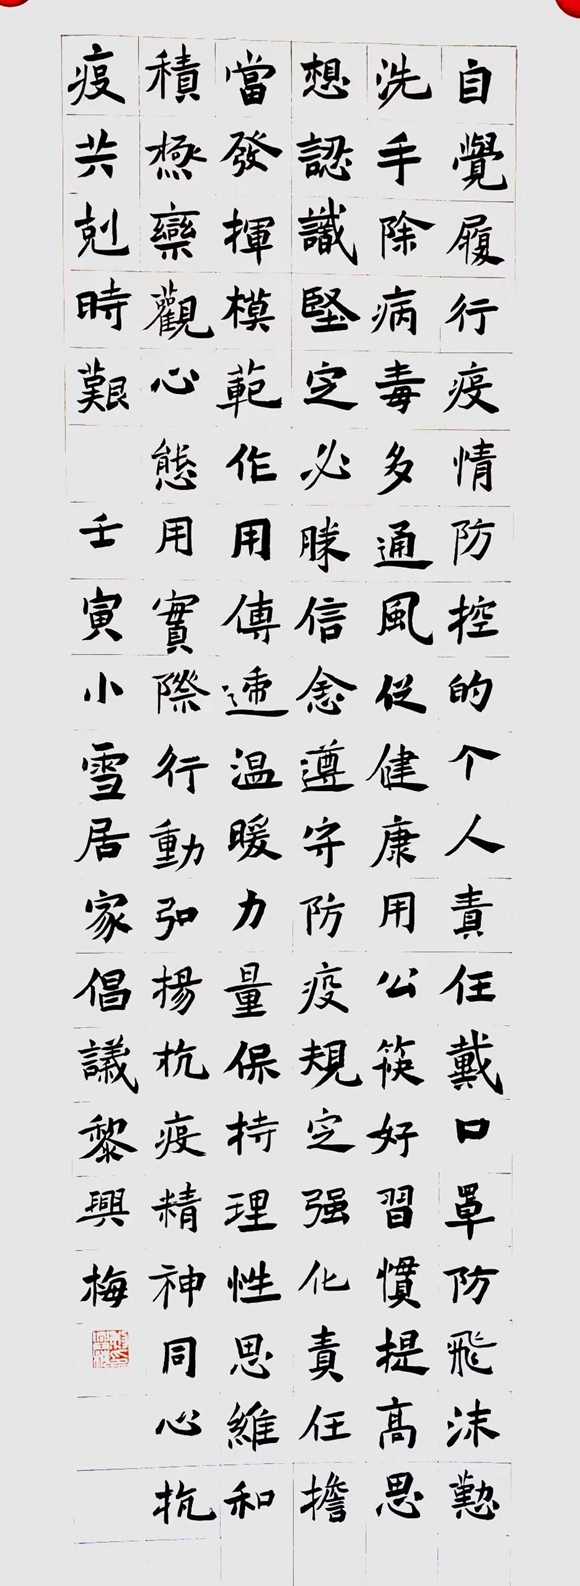 自覺履行疫情防控的个人責任戴口罩防飛沫勤
洗手除病毒多通風促健康用公筷好習慣提高思
想認識堅定必勝信念遵守防疫規定强化責任擔
當發揮模範作用傳遞温暖力量保持理性思維和
積極樂觀心態用實際行動弘揚抗疫精神同心抗
疫共剋時艱 壬寅小雪居家倡議黎興梅